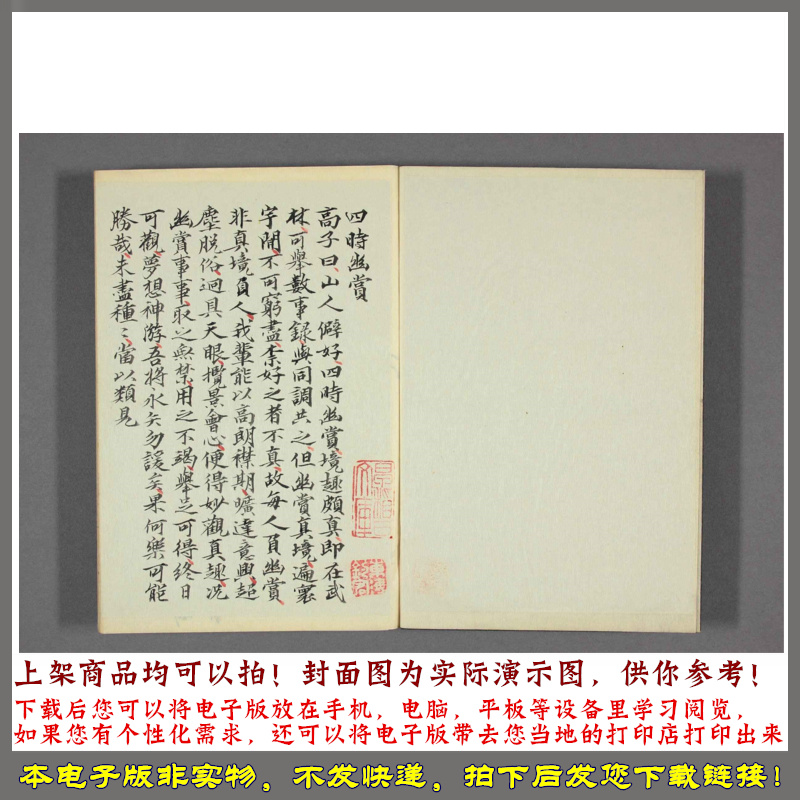 四時幽賞
高子曰、山人僻好、四時幽賞、境趣頗真、即在武
林、可舉數事、録與同調共之、但幽賞真境、遍寰
宇間、不可窮盡、奈好之者不真、故每人負幽賞、
非真境負人、我輩能以高朗襟期、曠達意興、超
塵脫俗、迥具天眼、攬景會心、便得妙觀真趣、况
幽賞事事、取之無禁、用之不竭、舉足可得、終日
可觀、夢想神游、吾將永矢勿諼矣、果何樂可能
勝哉、未盡種〻、當以類見
上架商品均可以拍！封面图为实际演示图，供你参考！
下载后您可以将电子版放在手机，电脑，平板等设备里学习阅览，
如果您有个性化需求，还可以将电子版带去您当地的打印店打印出来
本电子版非实物，不发快递，拍下后发您下载链接！